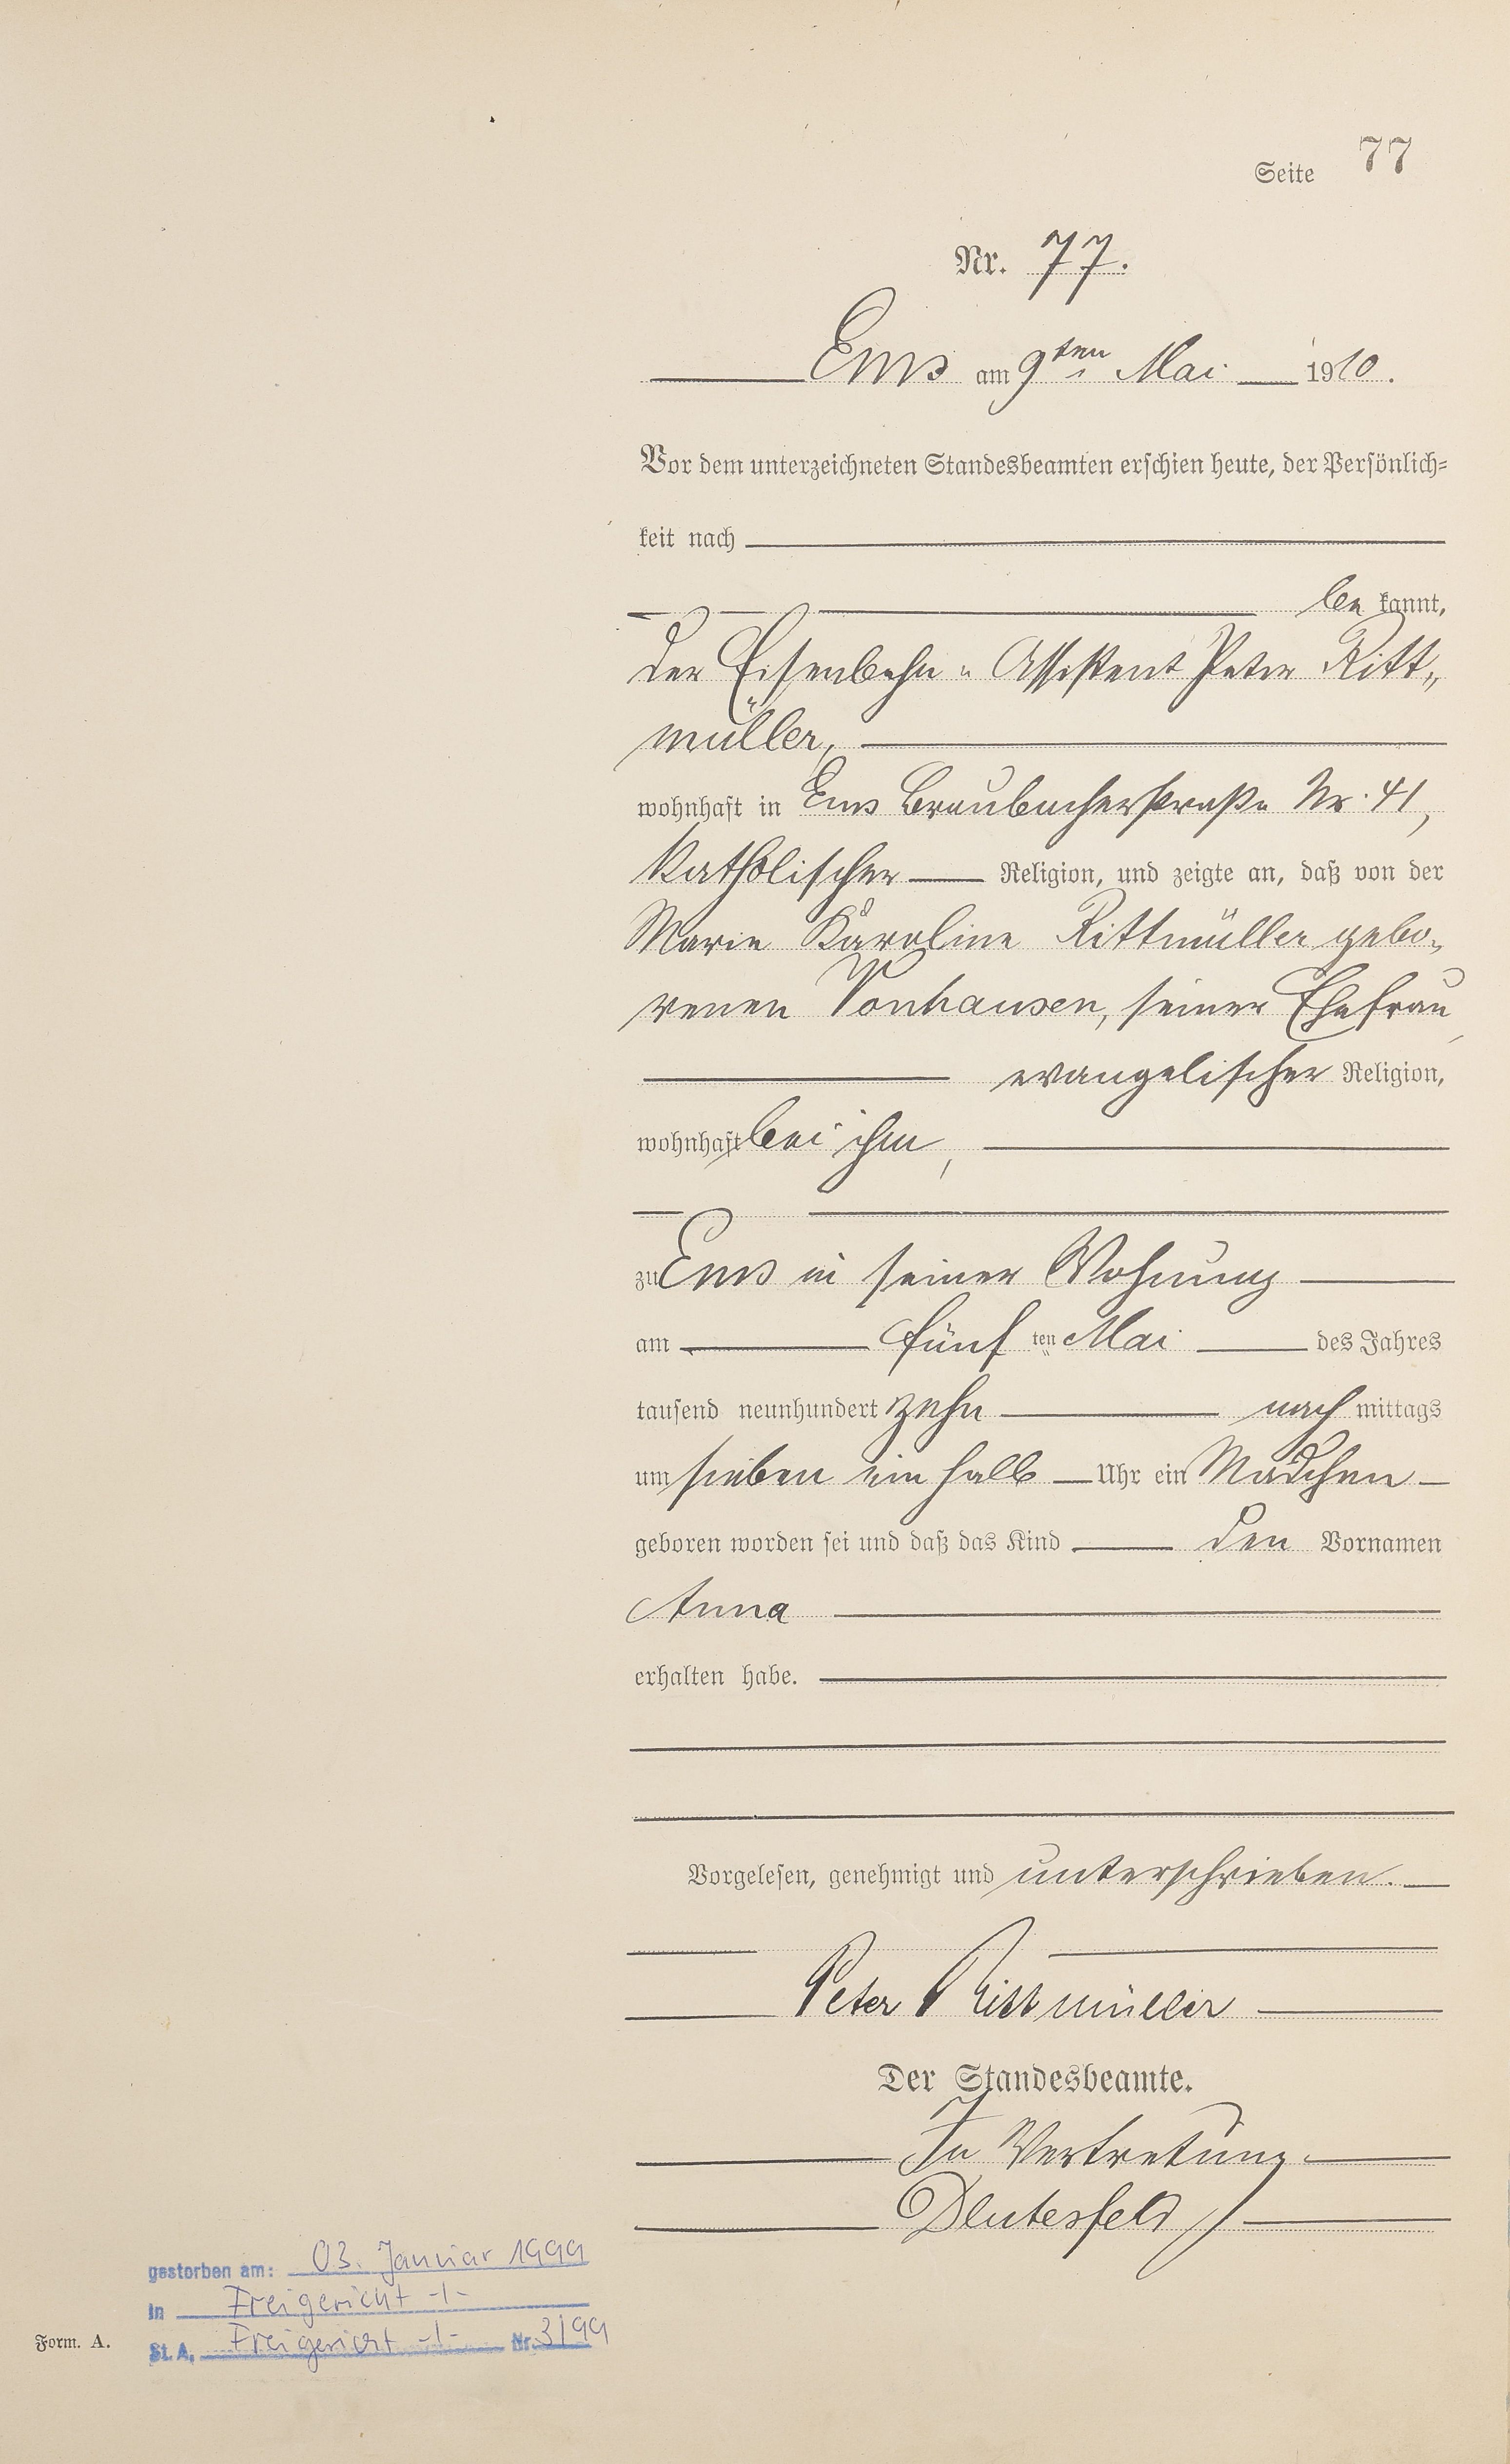 Seite 77
Nr. 77.
Ems am 9ten Mai 1910.
Vor dem unterzeichneten Standesbeamten erschien heute, der Persönlich-
keit nach
be kannt,
der Eisenbahn-Assistent Peter Ritt-
müller,
wohnhaft in Ems Braubacherstraße Nr. 41,
katholischer Religion, und zeigte an, daß von der
Marie Karoline Rittmüller gebo-
renen Vonhausen, seiner Ehefrau,
evangelischer Religion,
wohnhaft bei ihm,
zu Ems in seiner Wohnung
am fünf ten Mai des Jahres
tausend neunhundert zehn nach mittags
um sieben ein halb Uhr ein Mädchen
geboren worden sei und daß das Kind den Vornamen
Anna
erhalten habe.
Vorgelesen, genehmigt und unterschrieben.
Peter Rittmüller
Der Standesbeamte.
In Vertretung.
gestorben am: 03. Januar 1999
in Freigericht -1-
St. A. Freigericht -1- Nr. 3/99
Form. A.